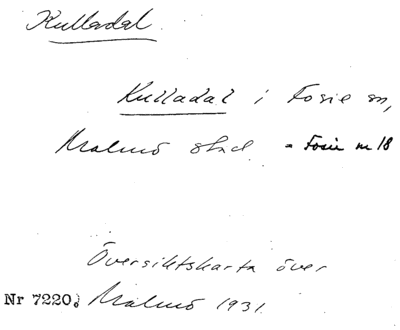 Kulladal
Kulladal i Fosie sn,
Malmö stad. = Fosie nr 18
Översiktskarta över
Nr 7220. Malmö 1931.